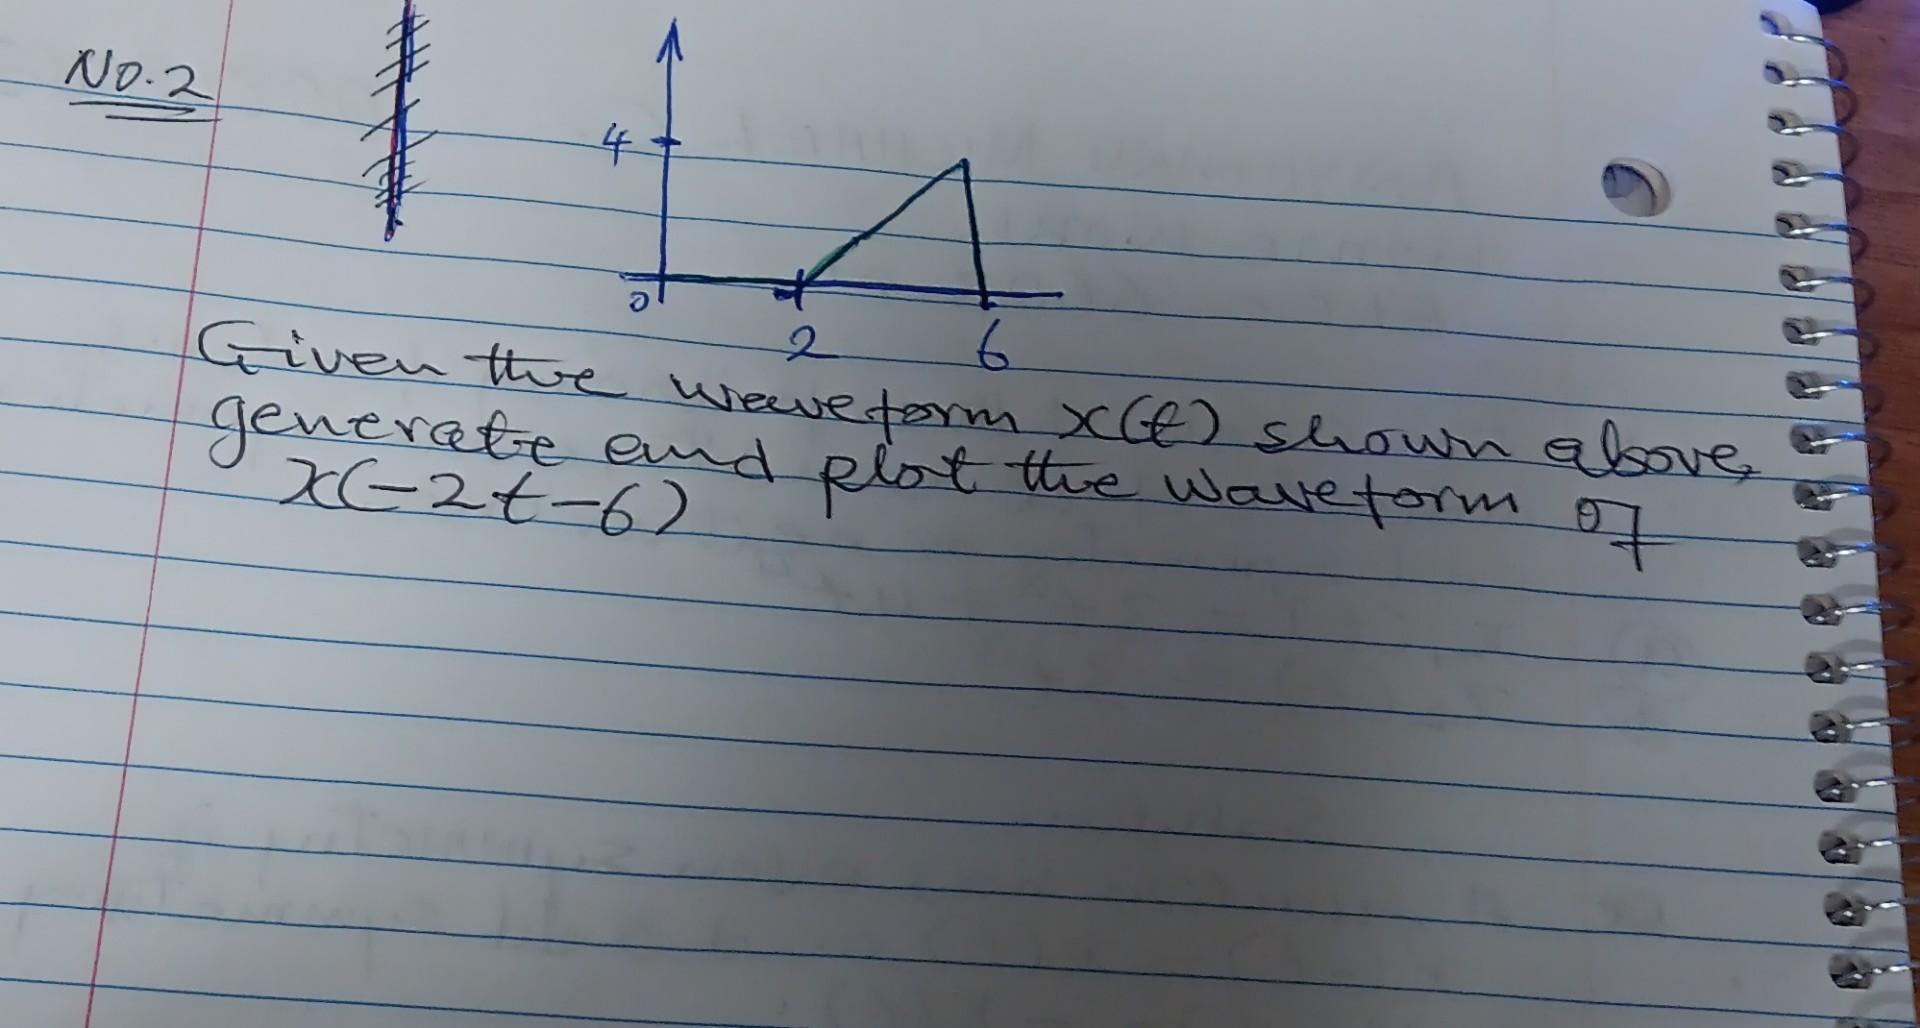 No.2
4
0
2 6
Given the waveform x(t) shown above,
generate and plot the waveform of
x(-2t-6)